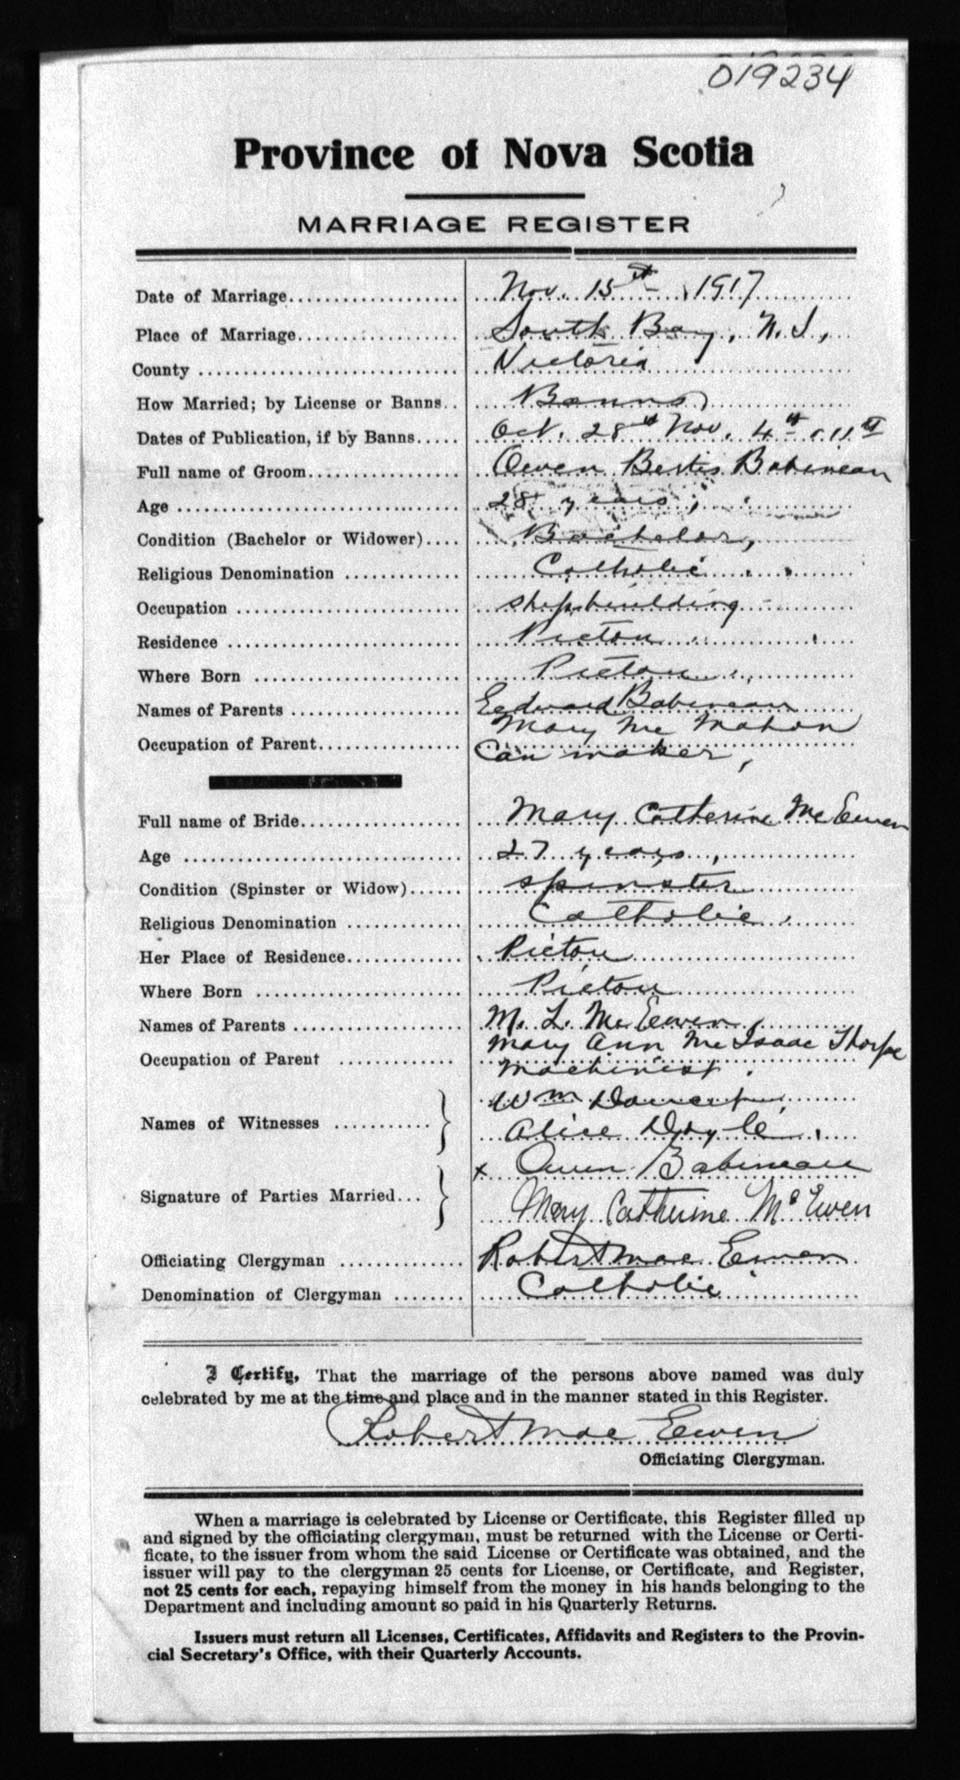 019234
Province of Nova Scotia
MARRIAGE REGISTER
Date of Marriage Nov. 15th 1917
Place of Marriage South Bay, N. S,
County Victoria
How Married; by License or Banns Banns
Dates of Publication, if by Banns Oct. 28th Nov. 4th, 11th
Full name of Groom Owen Bertis Babineau
Age 28 years,
Condition (Bachelor or Widower) Bachelor,
Religious Denomination Catholic
Occupation shipbuilding
Residence Pictou
Where Born Pictou
Names of Parents Edward Babineau
Mary Mc Mahon
Occupation of Parent Can maker,
Full name of Bride Mary Catherine McEwen
Age 27 years,
Condition (Spinster or Widow) spinster
Religious Denomination Catholic
Her Place of Residence Pictou
Where Born Pictou
Names of Parents M. L. McEwen
Mary Ann McIsaac Thorpe
Occupation of Parent Machinist.
Names of Witnesses Wm
Alice Doyle
Signature of Parties Married x Owen Babineau
Mary Catherine McEwen
Officiating Clergyman Robert Mac Ewen
Denomination of Clergyman Catholic
I Certify, That the marriage of the persons above named was duly
celebrated by me at the time and place and in the manner stated in this Register.
Robert Mac Ewen
Officiating Clergyman.
When a marriage is celebrated by License or Certificate, this Register filled up
and signed by the officiating clergyman, must be returned with the License or Certi-
ficate, to the issuer from whom the said License or Certificate was obtained, and the
issuer will pay to the clergyman 25 cents for License, or Certificate, and Register,
not 25 cents for each, repaying himself from the money in his hands belonging to the
Department and including amount so paid in his Quarterly Returns.
Issuers must return all Licenses, Certificates, Affidavits and Registers to the Provin-
cial Secretary's Office, with their Quarterly Accounts.